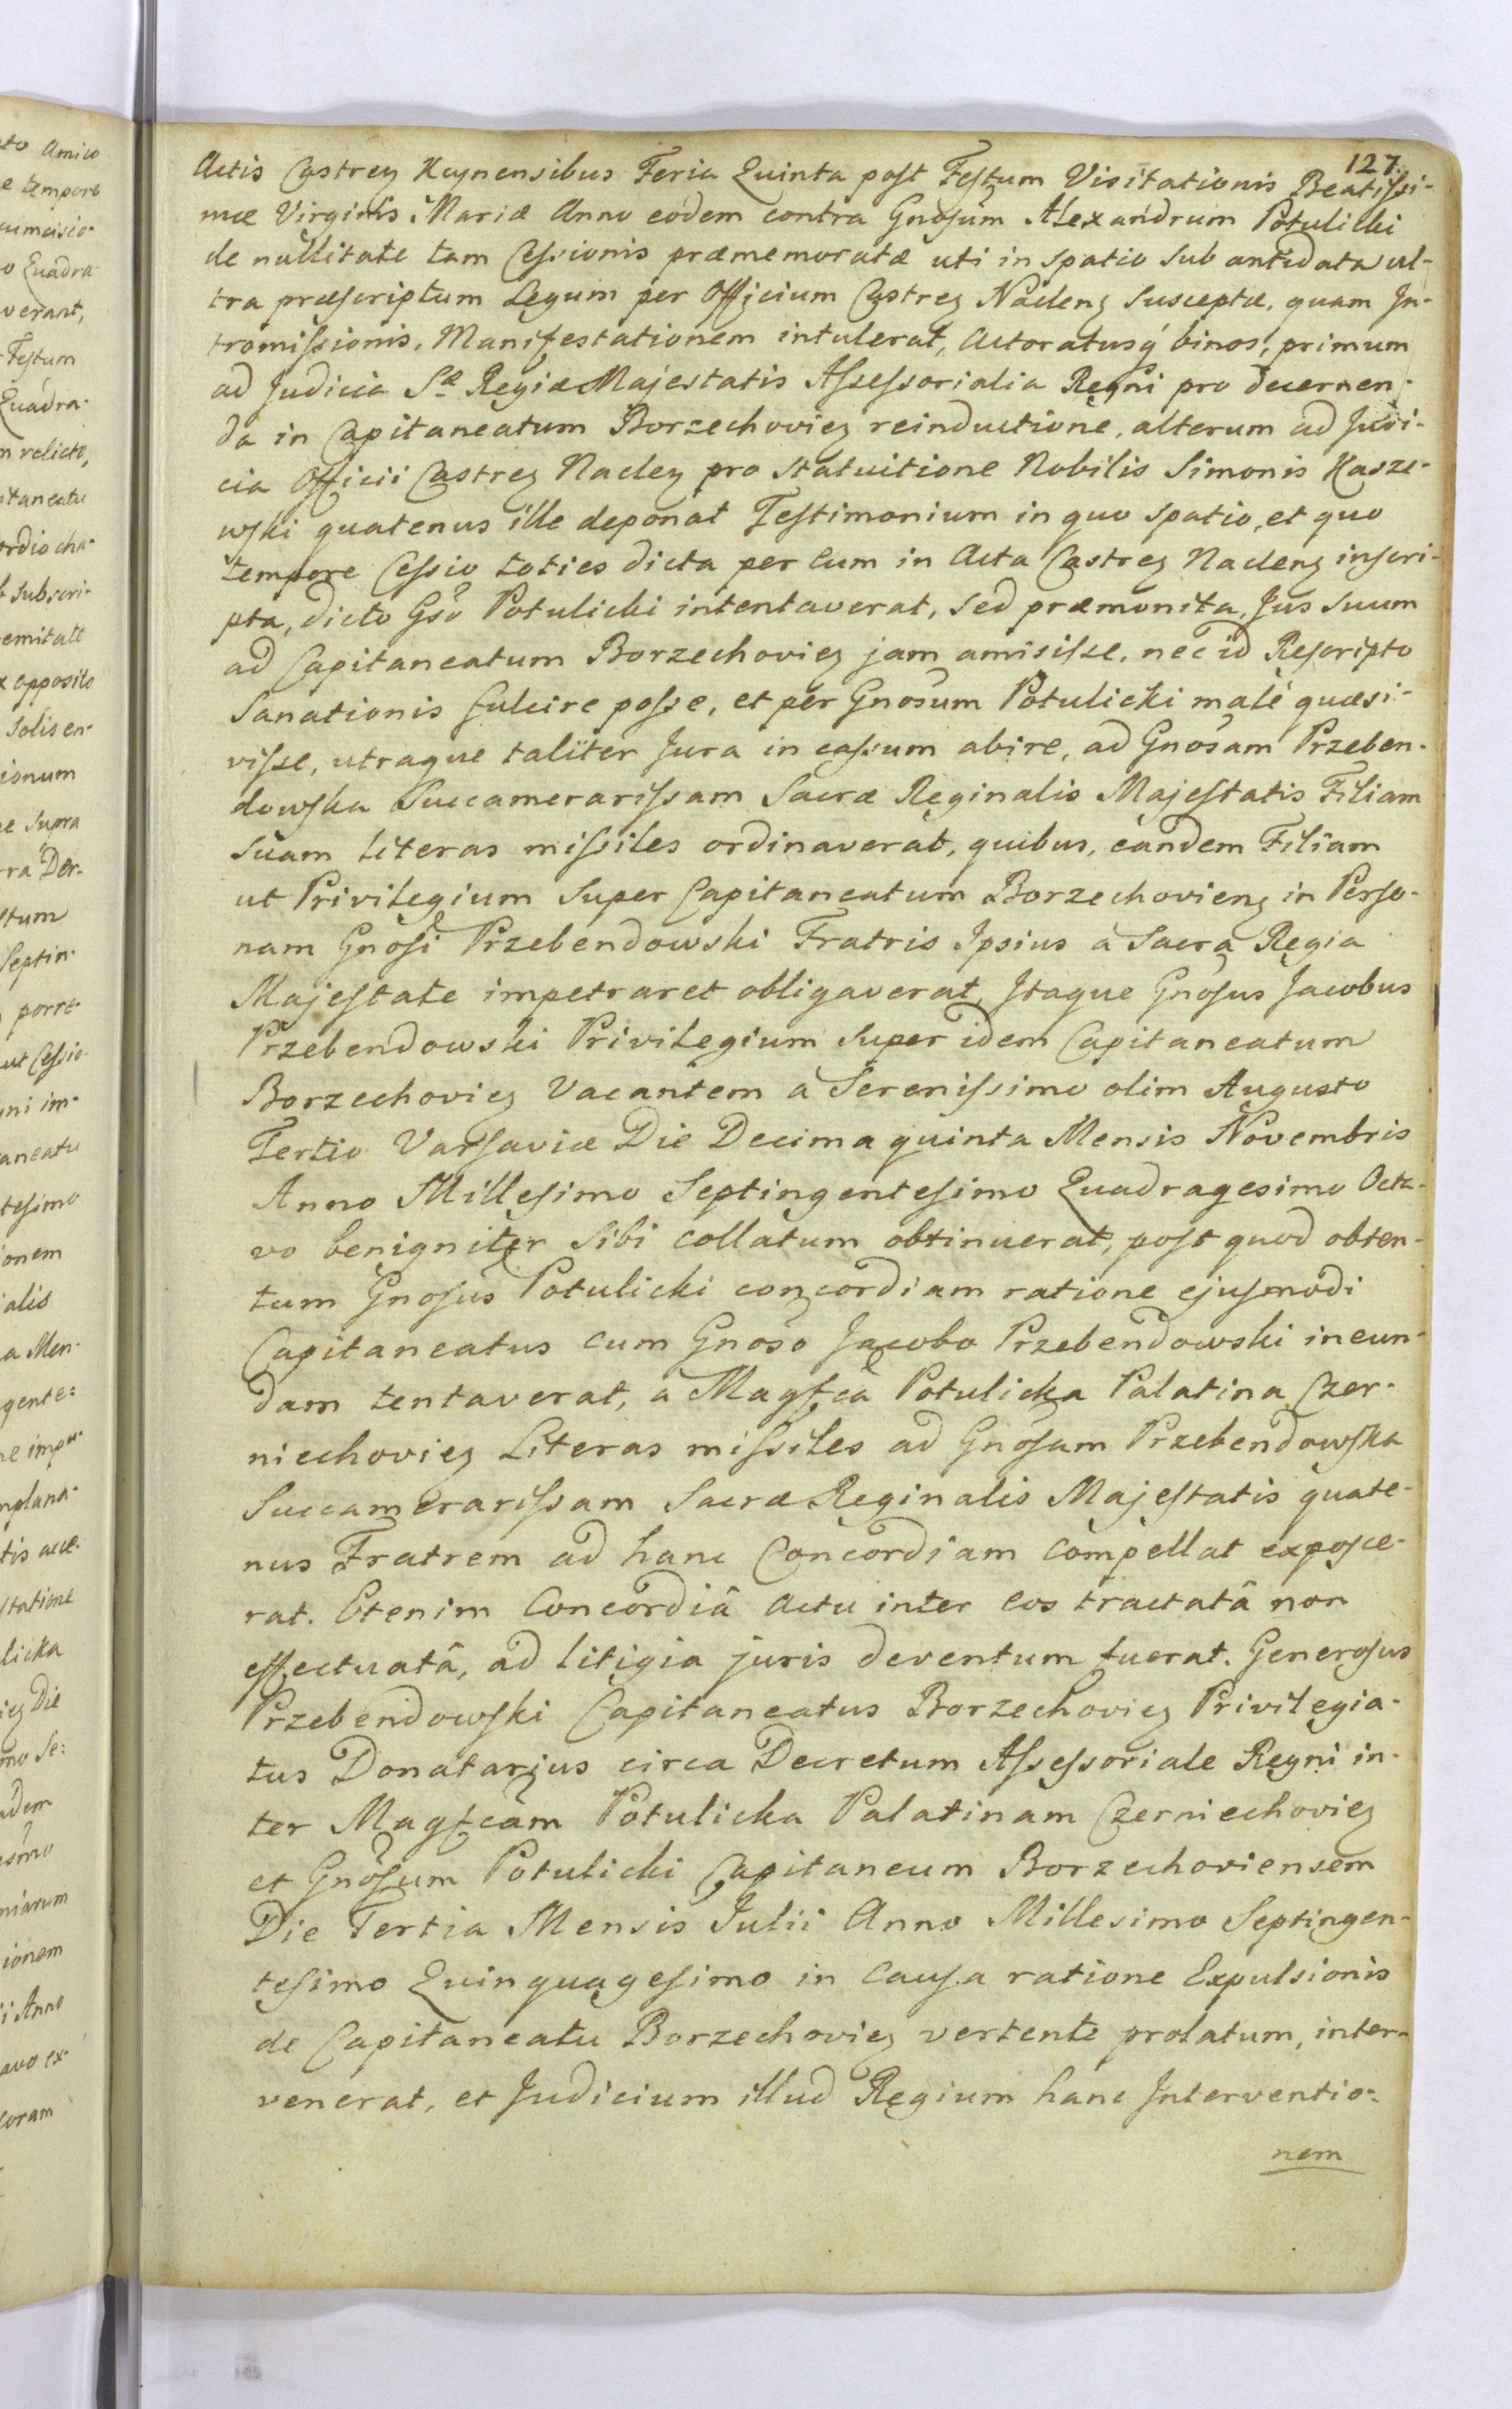 127.
Actis Castreñ Kcynensibus Feria Quinta post Festum Visitationis Beatissi-
mæ Virginis Mariæ Anno eodem contra Gnosum Alexandrum Potulicki
de nullitate tam Cessionis præmemoratæ uti in spatio sub antidata ul-
tra præscriptum Legum per Officium Castreñ Nacleñ susceptæ, quam In-
tromissionis, Manifestationem intulerat, Actoratusq́ binos, primum
ad Judicia Sæ Regiæ Majestatis Assessorialia Regni pro decernen-
da in Capitaneatum Borzechovieñ reinductione, alterum ad Judi-
cia Officii Castreñ Nacleñ pro statuitione Nobilis Simonis Kasze-
wski quatenus ille deponat Testimonium in quo spatio, et quo
tempore Cessio toties dicta per eum in Acta Castreñ Nacleñ inscri-
pta, dicto Gso Potulicki intentaverat, sed præmonita, Jus suum
ad Capitaneatum Borzechovieñ jam amisisse, nec id Rescripto
Sanationis fulcire posse, et per Gnosum Potulicki malè quæsi-
visse, utraque taliter Jura in cassum abire, ad Gnosam Przeben-
dowska Succamerarissam Sacræ Reginalis Majestatis Filiam
suam literas missiles ordinaverat, quibus, eandem Filiam
ut Privilegium super Capitaneatum Borzechovieñ in Perso-
nam Gnosi Przebendowski Fratris Ipsius a Sacra Regia
Majestate impetraret obligaverat, Itaque Gnosus Jacobus
Przebendowski Privilegium super idem Capitaneatum
Borzechovieñ Vacantem a Serenissimo olim Augusto
Tertio Varsaviæ Die Decima quinta Mensis Novembris
Anno Millesimo Septingentesimo Quadragesimo Octa-
vo benigniter sibi collatum obtinuerat, post quod obten-
tum Gnosus Potulicki concordiam ratione ejusmodi
Capitaneatus cum Gnoso Jacobo Przebendowski ineun-
dam tentaverat, a Magfca Potulicka Palatina Czer-
niechovieñ Literas missiles ad Gnosam Przebendowska
Succamerarissam Sacræ Reginalis Majestatis quate-
nus Fratrem ad hanc Concordiam compellat exposce-
rat. Etenim Concordiâ actu inter eos tractatâ non
effectuatâ, ad litigia juris deventum fuerat. Generosus
Przebendowski Capitaneatus Borzechovieñ Privilegia-
tus Donatarius circa Decretum Assessoriale Regni in-
ter Magfcam Potulicka Palatinam Czerniechovieñ
et Gnosum Potulicki Capitaneum Borzechoviensem
Die Tertia Mensis Julii Anno Millesimo Septingen-
tesimo Quinquagesimo in Causa ratione Expulsionis
de Capitaneatu Borzechovieñ vertente prolatum, inter-
venerat, et Judicium illud Regium hanc Interventio-
nem